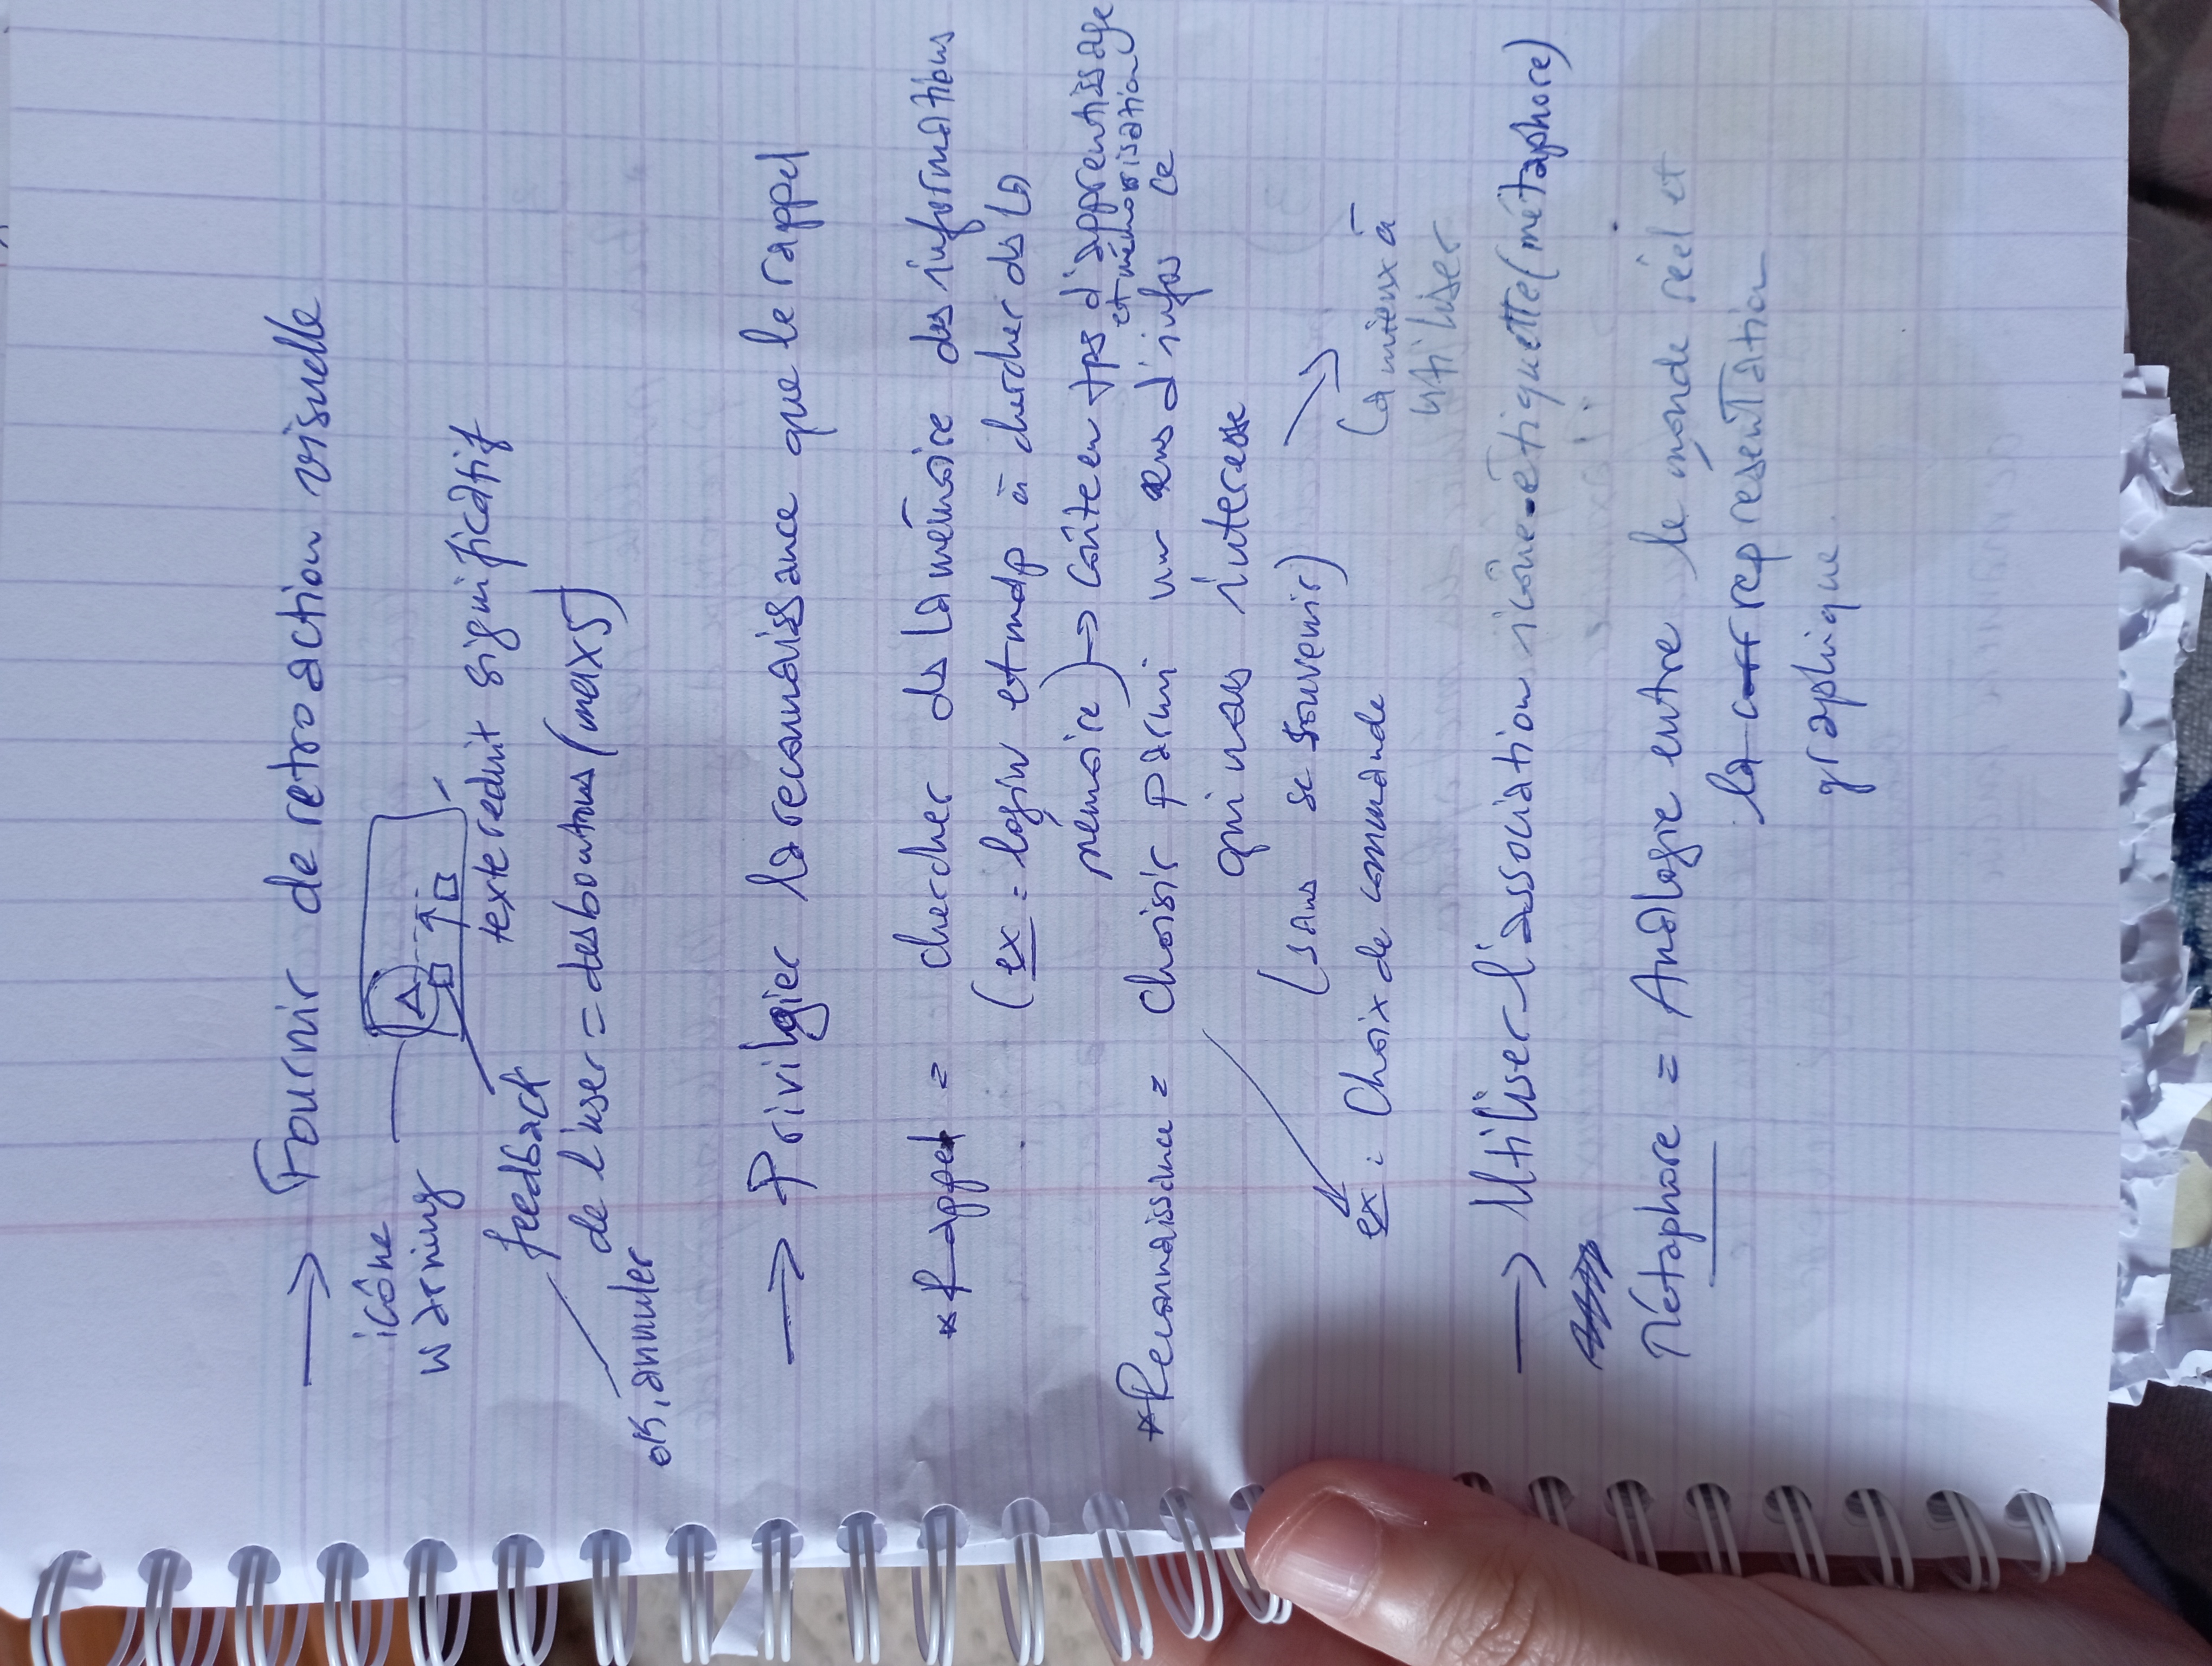 → Fournir de retroaction visuelle
icône
warning
texte reduit significatif
feedback
de l'user = des boutons (max 5)
ok, annuler
→ Privilgier la reconnaissance que le rappel
* Rappel = chercher ds la mémoire des informations
(ex = login et mdp à chercher ds la
mémoire) → coûte en tps d'apprentissage
et mémorisation
* Reconnaissance = choisir parmi un ens d'infos ce
qui nous interesse
(sans se souvenir)
ex : Choix de commande
La mieux à
utiliser
→ Utiliser l'association icône-étiquette (métaphore)
Métaphore = Analogie entre le monde réel et
la représentation
graphique.